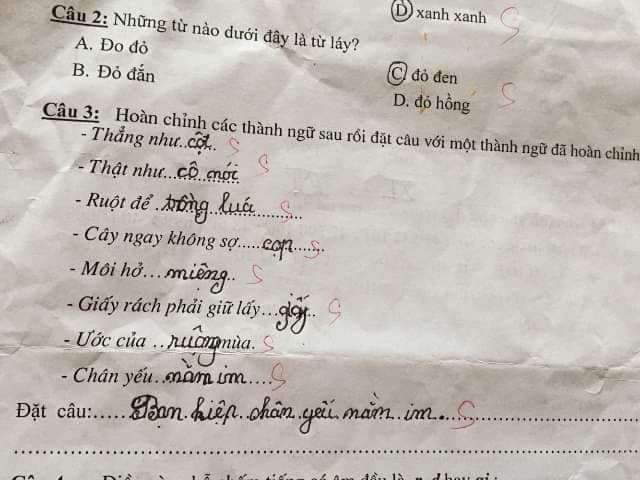 D xanh xanh S
Câu 2: Những từ nào dưới đây là từ láy?
A. Đo đỏ
B. Đỏ đắn
C đỏ đen S
D. đỏ hồng
Câu 3: Hoàn chỉnh các thành ngữ sau rồi đặt câu với một thành ngữ đã hoàn chỉnh
- Thẳng như.cột.. S
- Thật như...cô nói S
- Ruột để ..trồng luá........... S
- Cây ngay không sợ.....cọp...... S
- Môi hở...miệng.. S
- Giấy rách phải giữ lấy...giấy.. S
- Ước của ..ruộng mùa. S
- Chân yếu..nằm im.... S
Đặt câu:.....Bạn hiệp chân yếu nằm im. S